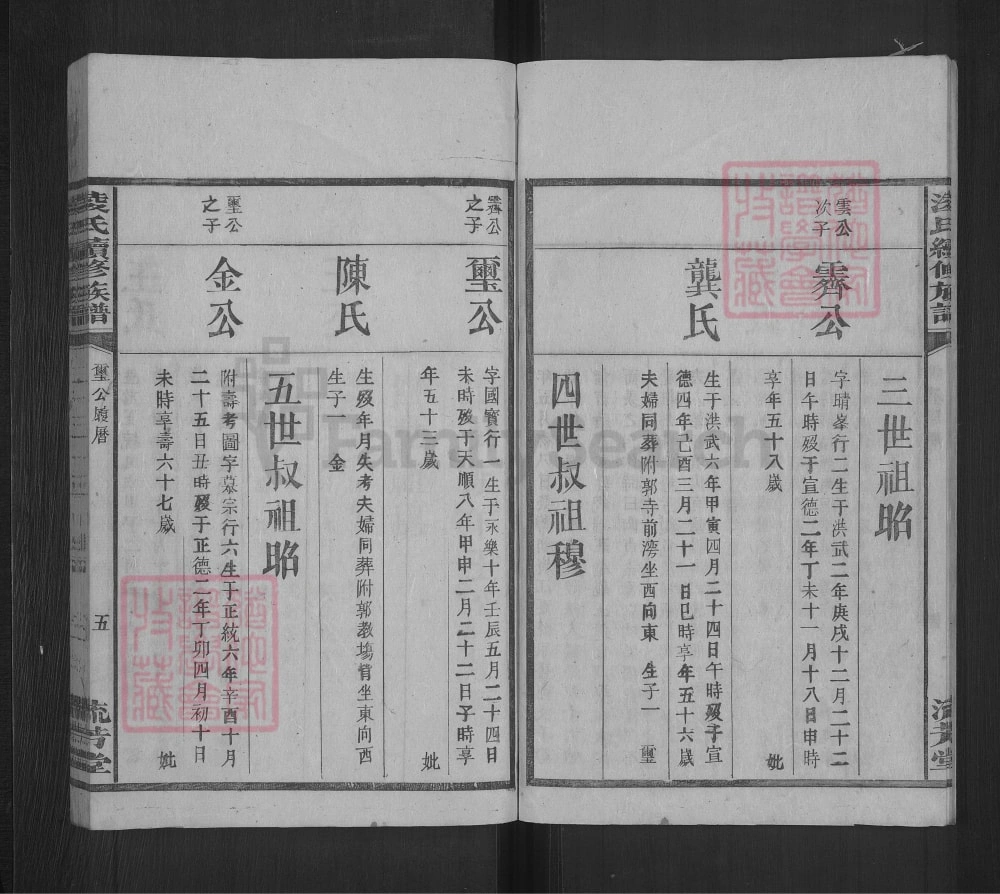 三世祖昭
雲公
次子
霽公
字晴峯行二生于洪武二年庚戌十二月二十二
日午時歿于宣德二年丁未十一月十八日申時
享年五十八歲
妣
龔氏
生于洪武六年甲寅四月二十四日午時歿于宣
德四年己酉三月二十一日巳時享年五十六歲
夫婦同葬附郭寺前灣坐西向東 生子一 璽
四世叔祖穆
霽公
之子
璽公
字國寶行一生于永樂十年壬辰五月二十四日
未時歿于天順八年甲申二月二十二日子時享
年五十三歲
妣
陳氏
生歿年月失考夫婦同葬附郭教塲背坐東向西
生子一 金
五世叔祖昭
璽公
之子
金公
附壽考圖字慕宗行六生于正統六年辛酉十月
二十五日丑時歿于正德二年丁卯四月初十日
未時享壽六十七歲
妣
凌氏續修族譜
璽公履歷
五
流芳堂
FamilySearch